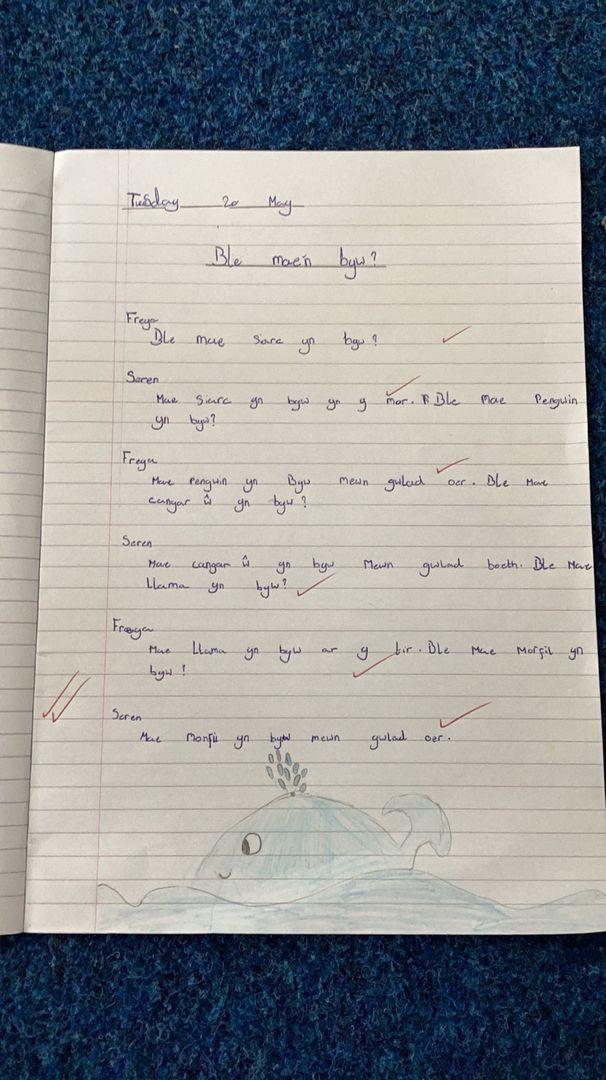 Tuesday 20 May
Ble mae'n byw?
Freya
Ble mae siarc yn byw?
Seren
Mae Siarc yn byw yn y mor. Ble mae Penguin
yn byw?
Freya
Mae Penguin yn Byw mewn gwlad oer. Ble Mae
cangar ŵ yn byw?
Seren
Mae cangar ŵ yn byw Mewn gwlad boeth. Ble Mae
Llama yn byw?
Freya
Mae Llama yn byw ar y tir. Ble Mae Morfil yn
byw!
Seren
Mae Morfil yn byw mewn gwlad oer.